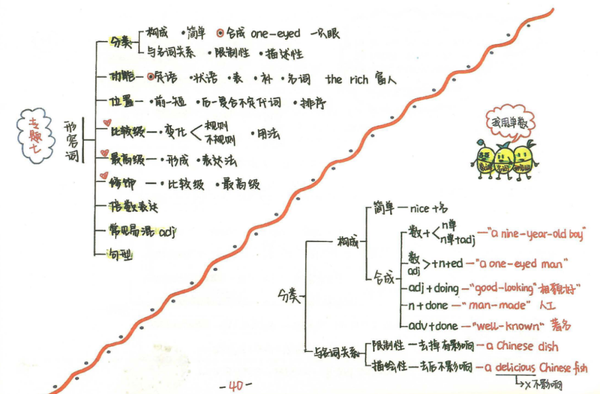 专题七
形容词
分类
构成 ·简单 ·合成 one-eyed 一只眼
与名词关系 ·限制性 ·描述性
功能 ·定语 ·状语 ·表 ·补 ·名词 the rich 富人
位置 ·前-短 ·后-复合不定代词 ·排序
比较级 ·变化 规则 不规则 ·用法
最高级 ·形成 ·表达法
修饰 ·比较级 ·最高级
倍数表达
常见易混 adj
句型
我用单数
分类
构成
简单 — nice +名
合成
数+ n单 n单+adj — "a nine-year-old boy"
数 adj >+n+ed — "a one-eyed man"
adj+doing — "good-looking"
n+done — "man-made" 人工
adv+done — "well-known" 著名
与名词关系
限制性 — 去掉有影响 — a Chinese dish
描绘性 — 去后不影响 — a delicious Chinese fish
→x不影响
-40-